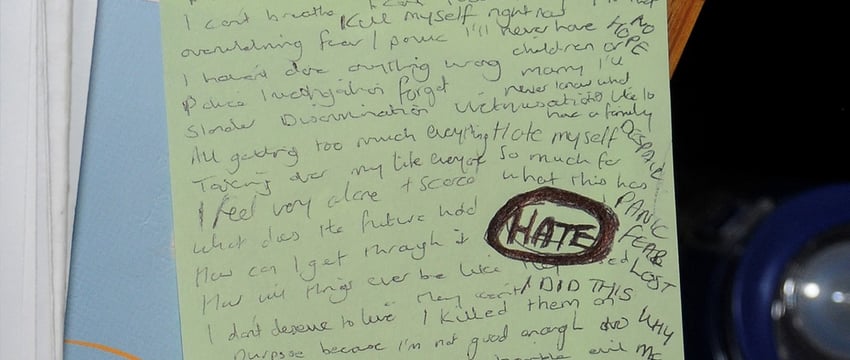 I can't breathe
Kill myself right now
overwhelming fear / panic I'll never have
NO
HOPE
I haven't done anything wrong
children or
marry I'll
Police Investigation forget
never know what
Slander Discrimination Victimisation
like to
have a family
All getting too much everything Hate myself
DESPAIR
Taking over my life
so much for
I feel very alone + scared
what this has
what does the future hold
HATE
PANIC
FEAR
LOST
How can I get through it
How will things ever be like
I DID THIS
I don't deserve to live
I killed them on
WHY
purpose because I'm not good enough
evil